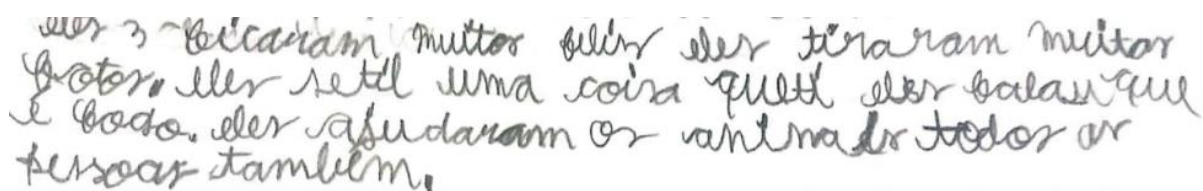 eles 3 ficaram muitos felis eles tiraram muitos
fotos. eles setil uma coisa quetl eles falau que
é fogo. eles ajudaram os animals todos as
pessoas também.